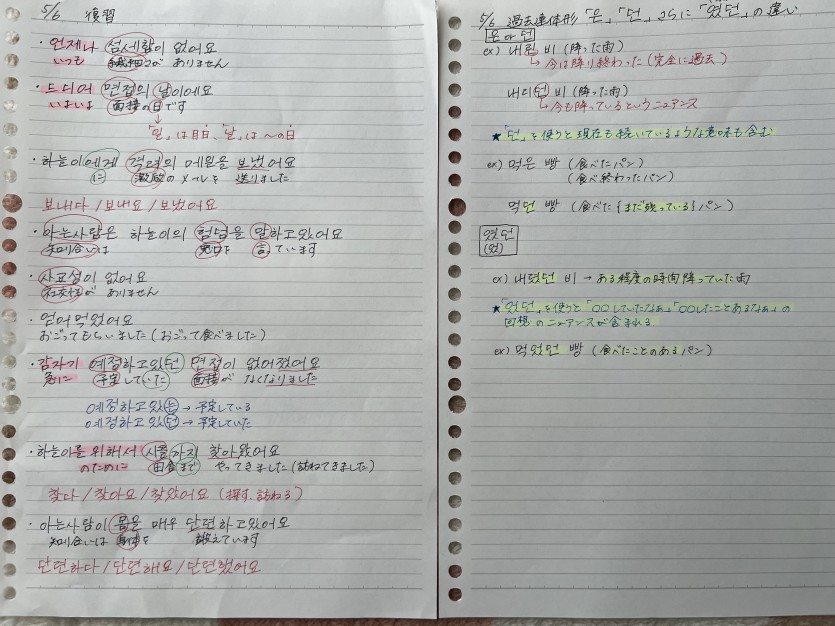 5/6 復習
・언제나 섬세함이 없어요
いつも 繊細さが ありません
・드디어 면접의 날이에요
いよいよ 面接の日です
「일」は曜日、「날」は〜の日
・하늘이에게 격려의 메일을 보냈어요
に 激励のメールを 送りました
보내다 / 보내요 / 보냈어요
・아는사람은 하늘이의 험담을 말하고있어요
知り合いは 悪口を 言っています
・사교성이 없어요
社交性が ありません
・얻어먹었어요
おごってもらいました(おごって食べました)
・갑자기 예정하고있던 면접이 없어졌어요
急に 予定していた 面接が なくなりました
예정하고있는 → 予定している
예정하고있던 → 予定していた
・하늘이를 위해서 시골까지 찾아왔어요
のために 田舎まで やってきました(訪ねてきました)
찾다 / 찾아요 / 찾았어요 (探す、訪ねる)
・아는사람이 몸을 매우 단련하고있어요
知り合いは 身体を 鍛えています
단련하다 / 단련해요 / 단련했어요
5/6 過去連体形「은」「던」さらに「었던」の違い
은 or 던
ex) 내린 비 (降った雨)
↳今は降り終わった(完全に過去)
내리던 비 (降った雨)
↳今も降っているというニュアンス
★「던」を使うと現在も続いているような意味も含む
ex) 먹은 빵 (食べたパン)
(食べ終わったパン)
먹던 빵 (食べた{まだ残っている}パン)
었던
(았)
ex) 내렸던 비 → ある程度の時間降っていた雨
★「었던」を使うと「〇〇していたなぁ」「〇〇したことあるなぁ」の
回想のニュアンスが含まれる
ex) 먹었던 빵 (食べたことのあるパン)